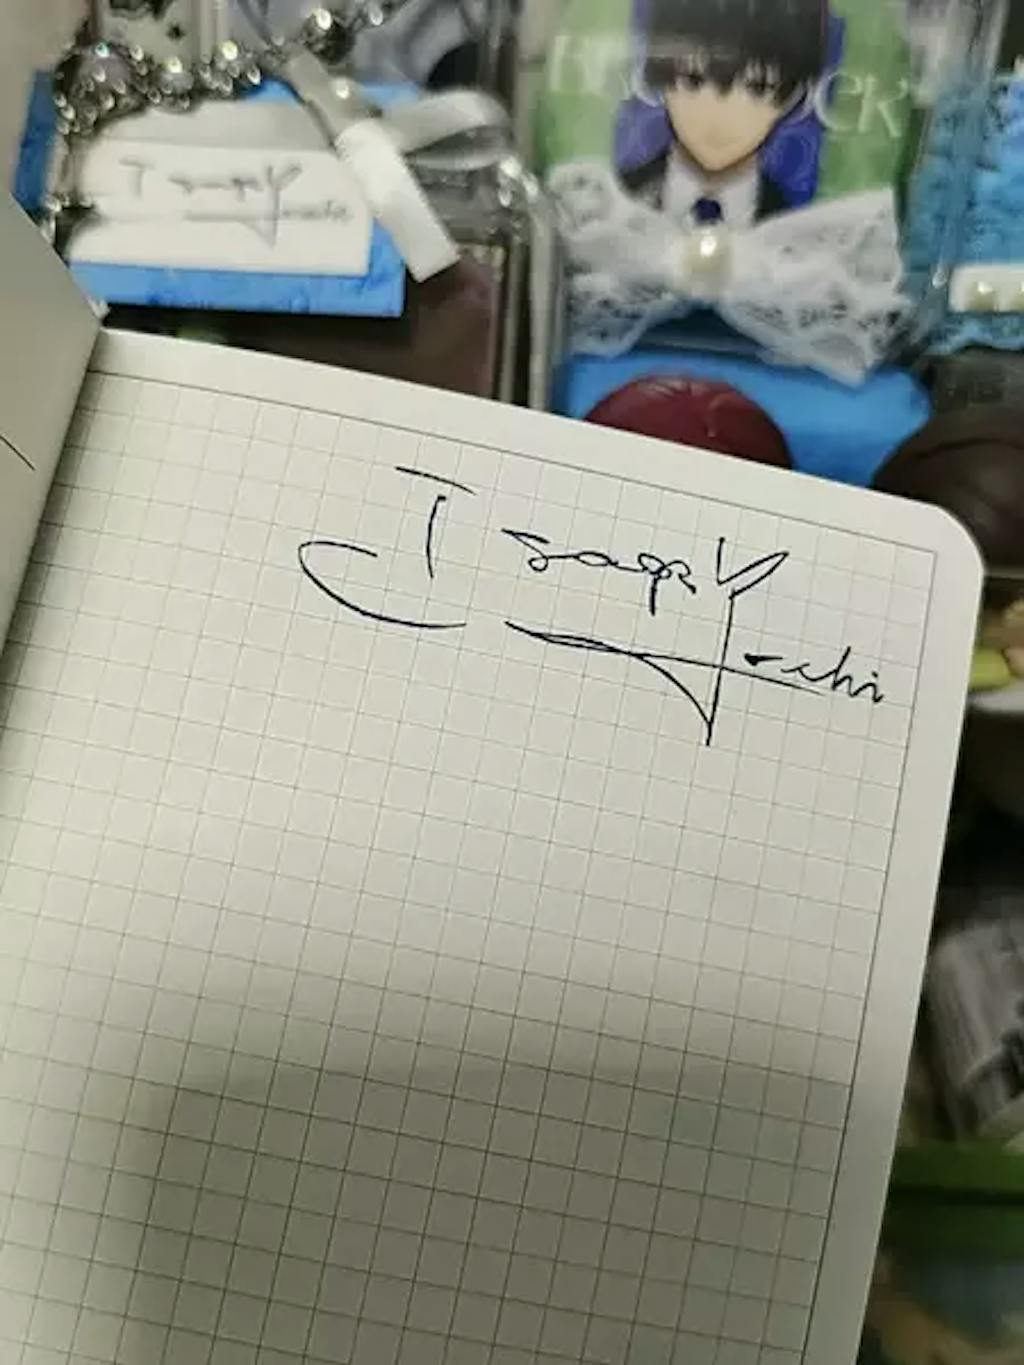 Isagi Yoichi
Isagi Yoichi